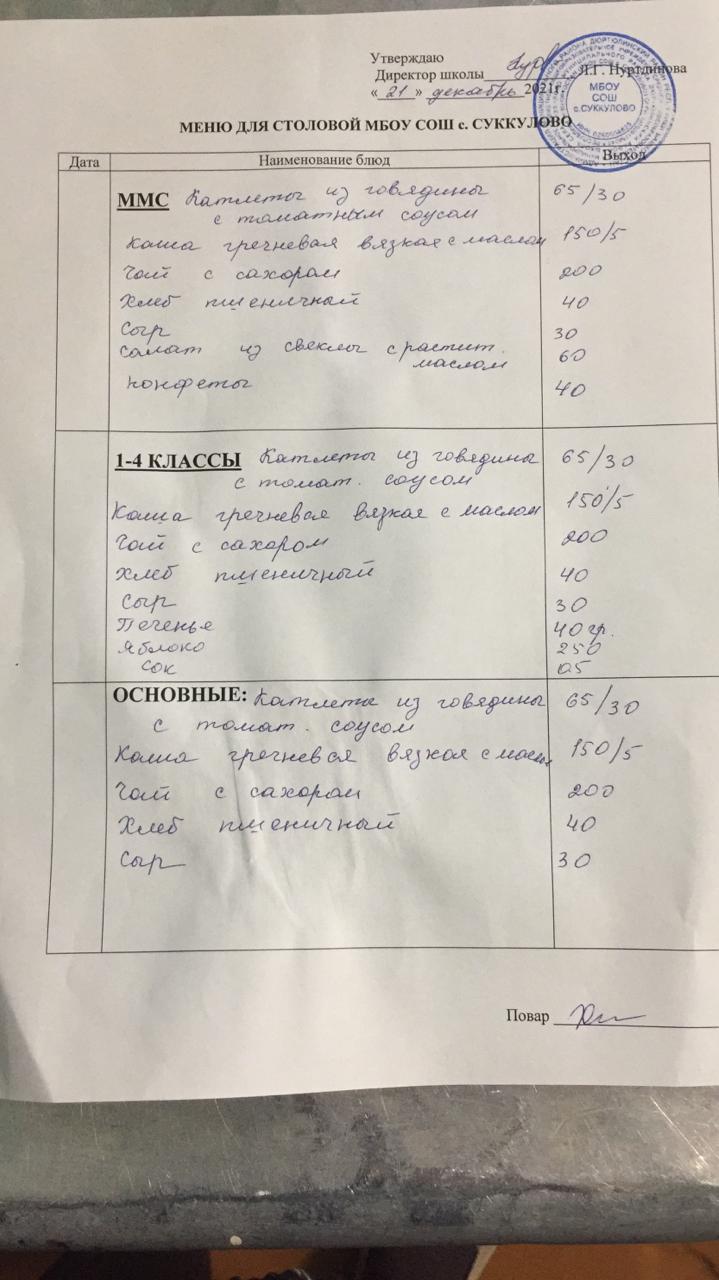 Утверждаю
Директор школы Л.Г. Нуртдинова
« 21 » декабрь 2021г.
МБОУ
СОШ
с.СУККУЛОВО
МЕНЮ ДЛЯ СТОЛОВОЙ МБОУ СОШ с. СУККУЛОВО
Дата Наименование блюд Выход
ММС Катлеты из говядины 65/30
с томатным соусом
Каша гречневая вязкая с маслом 150/5
Чай с сахаром 200
Хлеб пшеничный 40
Сыр 30
салат из свеклы с растит. 60
маслом
конфеты 40
1-4 КЛАССЫ Катлеты из говядины 65/30
с томат. соусом
Каша гречневая вязкая с маслом 150/5
Чай с сахаром 200
Хлеб пшеничный 40
Сыр 30
Печенье 40 гр.
Яблоко 250
Сок 0,5
ОСНОВНЫЕ: Катлеты из говядины 65/30
с томат. соусом
Каша гречневая вязкая с маслом 150/5
Чай с сахаром 200
Хлеб пшеничный 40
Сыр 30
Повар